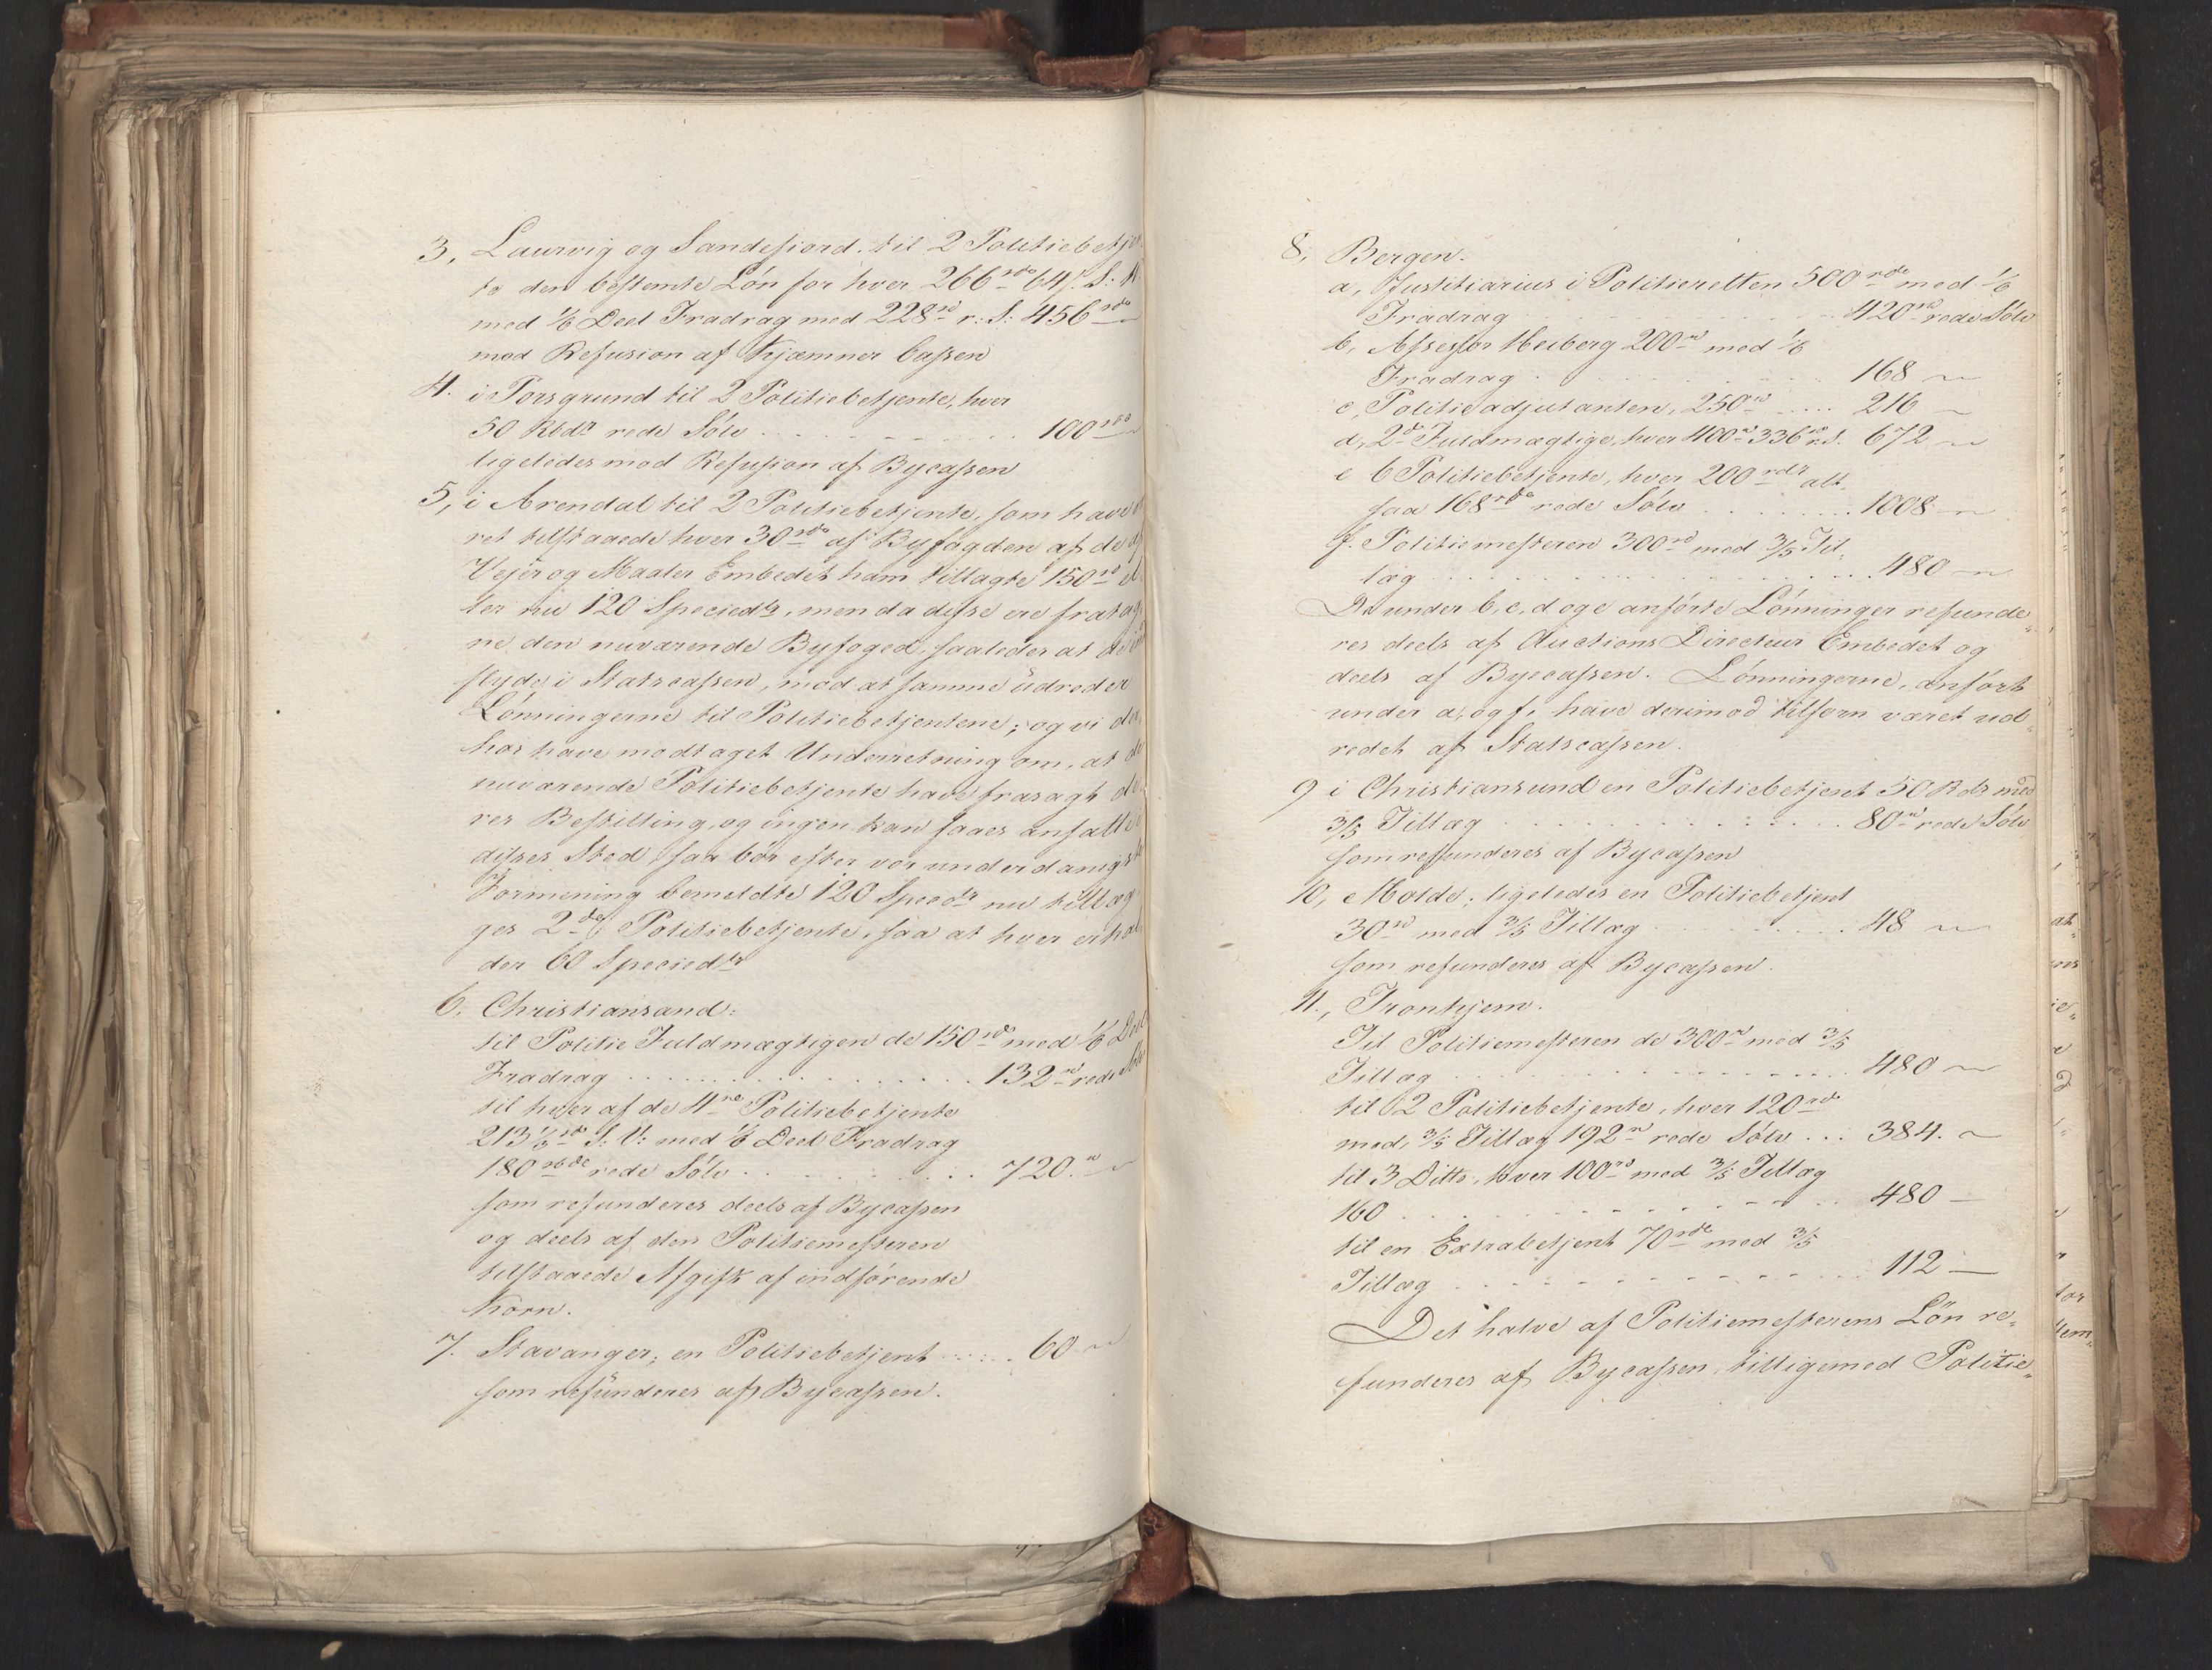 3, Laurvig og Sandefiord. til 2 Politiebetje
te den bestemte Lön for hver 266 rde 64 s. S: V
med 1/6 Deel Fradrag med 228 rd r: S: 456 rde
mod Refusion af Kjæmner Cassen
4. i Porsgrund til 2 Politiebetjente, hver
50 Rbdr rede Sölv . . . . . . . 100 rde
ligeledes mod Refusion af Bycassen
5, i Arendal til 2 Politiebetjente, som have
ret tilstaaede hver 30 rde af Byfogden af de af
Vejer og Maaler Embedet ham tillagte 150 rd el
ler nu 120 Speciedlr, men da disse ere fratag
ne den nuværende Byfoged, saaledes at de
flyde i Statscassen, mod at samme udreder
Lönningerne til Politiebetjentene; og vi de
hos have modtaget Underretning om, at de
nuværende Politiebetjente have frasagt de
res Bestilling, og ingen kan faaes ansatte
disses Sted, saa bör efter vor underdanigste
Formening bemeldte 120 Specdlr nu tillæg
ges 2de Politiebetjente, saa at hver erhol
der 60 Speciedlr
6, Christiansand:
til Politie Fuldmægtigen de 150 rde med 1/6 Deel
Fradrag . . . . . . . . . . 132 rd rede Sölv
til hver af de 4re Politiebetjente
213 1/3 rde S: V: med 1/6 Deel Fradrag
180 rbde rede Sölv . . . . . . . 720. rd
som refunderes deels af Bycassen
og deels af den Politiemesteren
tilstaaede Afgift af indförende
Korn.
7. Stavanger, en Politiebetjent . . . . 60
som refunderes af Bycassen.
8, Bergen.
a, Justitiarius i Politieretten 500 rde med 1/6
Fradrag . . . . . . . . 420 rd rede Sölv
b, Assessor Heiberg 200 rd med 1/6
Fradrag . . . . . . . . 168
c, Politieadjutanten, 250 rd . . . . 216
d, 2de Fuldmægtige, hver 400 rd 336 rd r.S. 672
e 6 Politiebetjente, hver 200 rdr alt-
saa 168 rde rede Sölv . . . . . . 1008
f. Politiemesteren 300 rd med 3/5 Til-
læg . . . . . . . . . . 480
De under b, c, d og e anförte Lönninger refunde-
res deels af Auctions Directeur Embedet og
deels af Bycassen. Lönningerne, anfört
under a, og f, have derimod tilforn været ud-
redet af Statscassen.
9 i Christiansund en Politiebetjent 50 Rdr med
3/5 Tillæg . . . . . . . . 80 rd rede Sölv
som refunderes af Bycassen
10, Molde; ligeledes en Politiebetjent
30 rd med 3/5 Tillæg . . . . . . 48
som refunderes af Bycassen.
11., Tronhjem.
Til Politiemesteren de 300 rd med 3/5
Tillæg . . . . . . . . . 480
til 2 Politiebetjente, hver 120 rde
med 3/5 Tillæg 192 rd rede Sölv . . . 384.
til 3 Ditto, hver 100 rd med 3/5 Tillæg
160 . . . . . . . . . . 480
til en Extrabetjent 70 rde med 3/5
Tillæg . . . . . . . . . 112
Det halve af Politiemesterens Lön re-
funderes af Bycassen, tilligemed Politie-